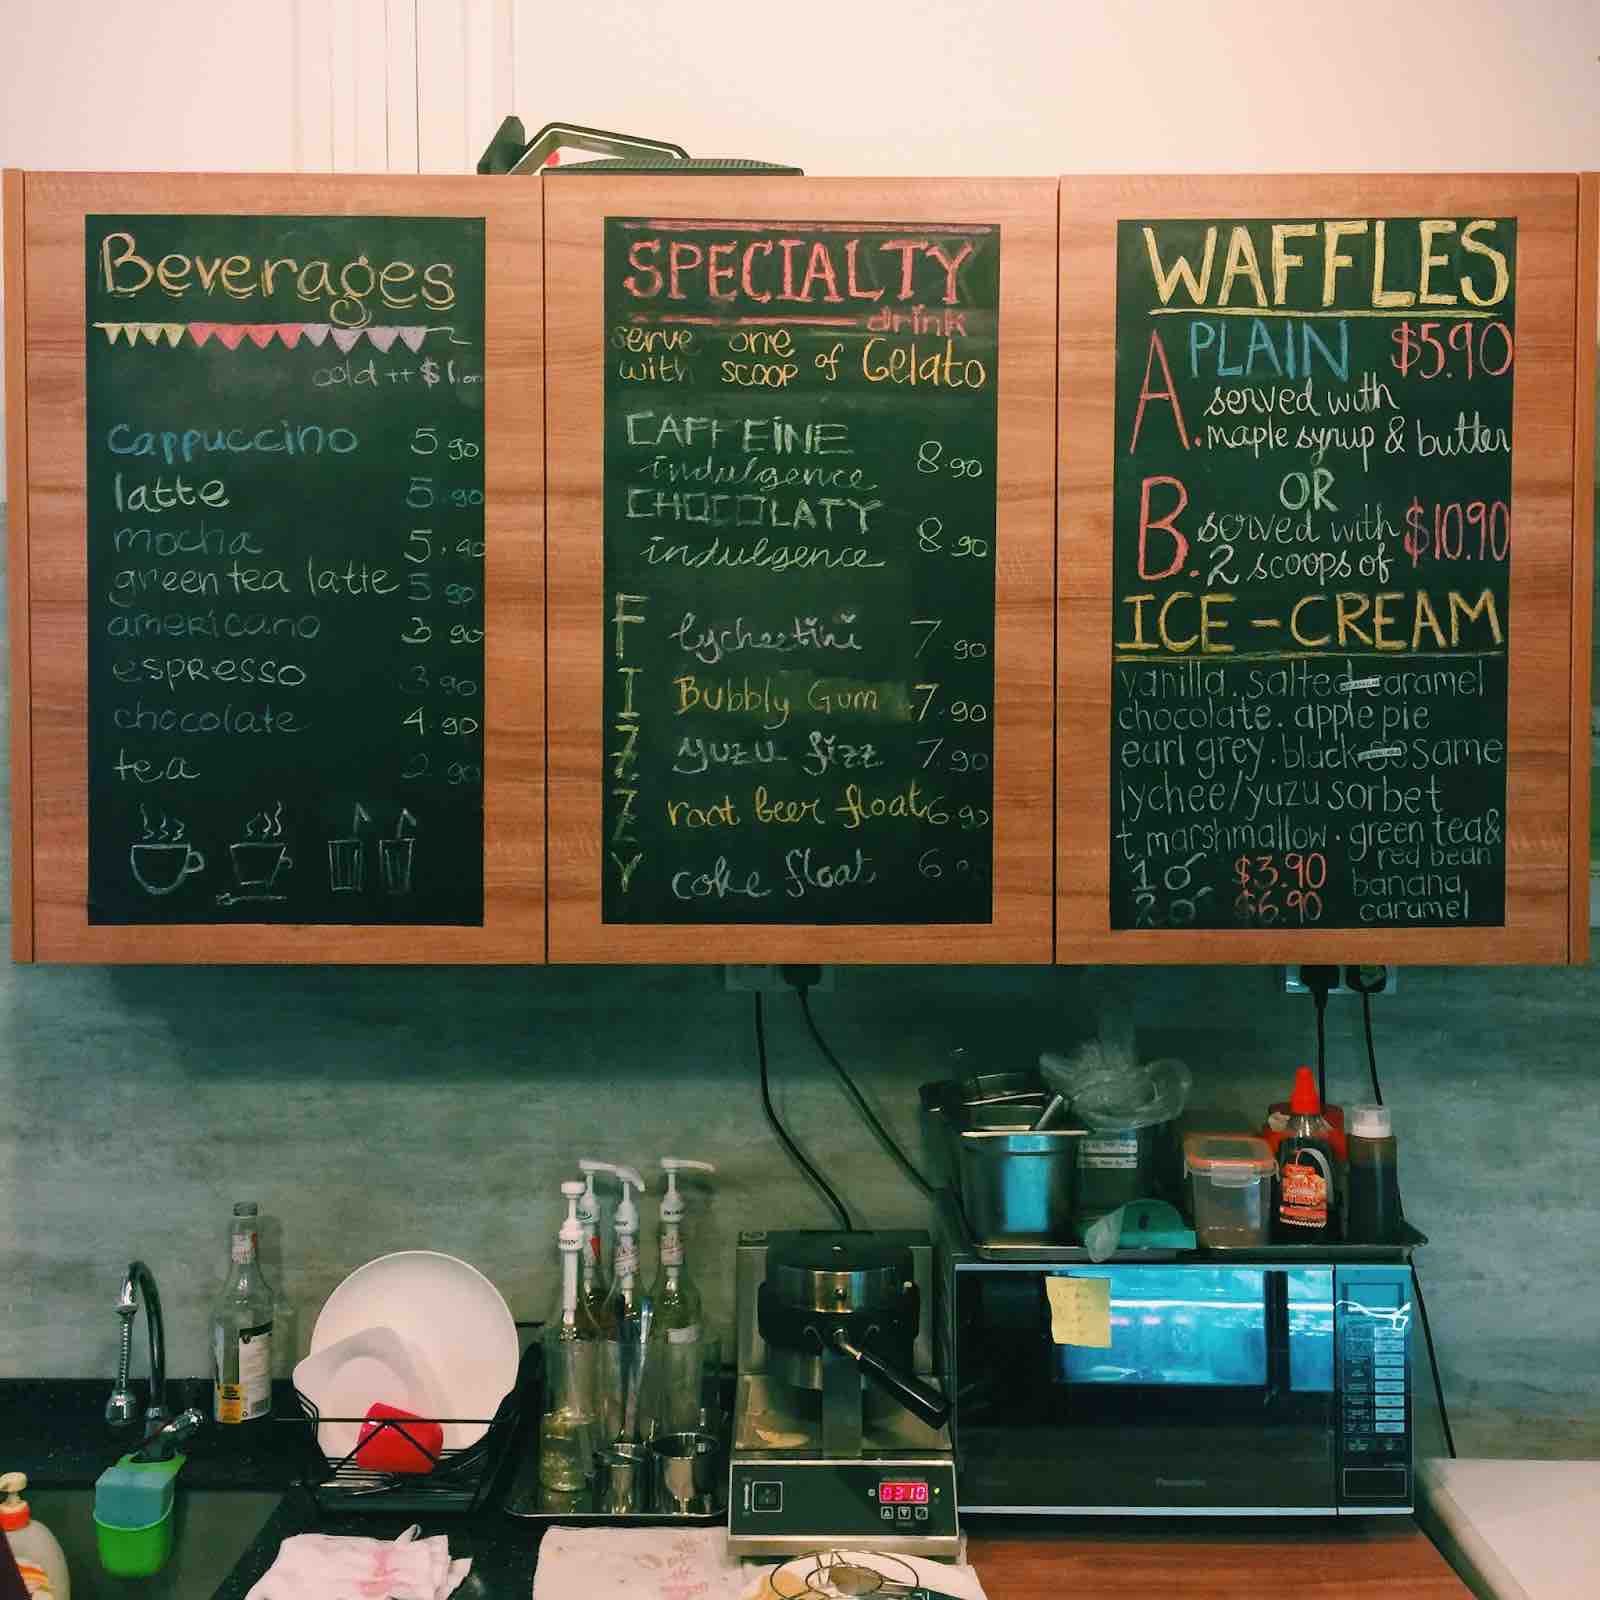 Beverages
cold ++ $1.00
cappuccino 5.90
latte 5.90
mocha 5.90
green tea latte 5.90
americano 3.90
espresso 3.90
chocolate 4.90
tea 2.90
SPECIALTY
drink
serve one
with scoop of Gelato
CAFFEINE
indulgence 8.90
CHOCOLATY
indulgence 8.90
FIZZY
lycheetini 7.90
Bubbly Gum 7.90
yuzu fizz 7.90
root beer float 6.90
coke float 6.90
WAFFLES
A. PLAIN $5.90
served with
maple syrup & butter
OR
B. served with $10.90
2 scoops of
ICE-CREAM
vanilla. salted caramel
chocolate. apple pie
earl grey. black sesame
lychee/yuzu sorbet
t. marshmallow. green tea &
red bean
1 $3.90 banana
2 $6.90 caramel
0310
Panasonic